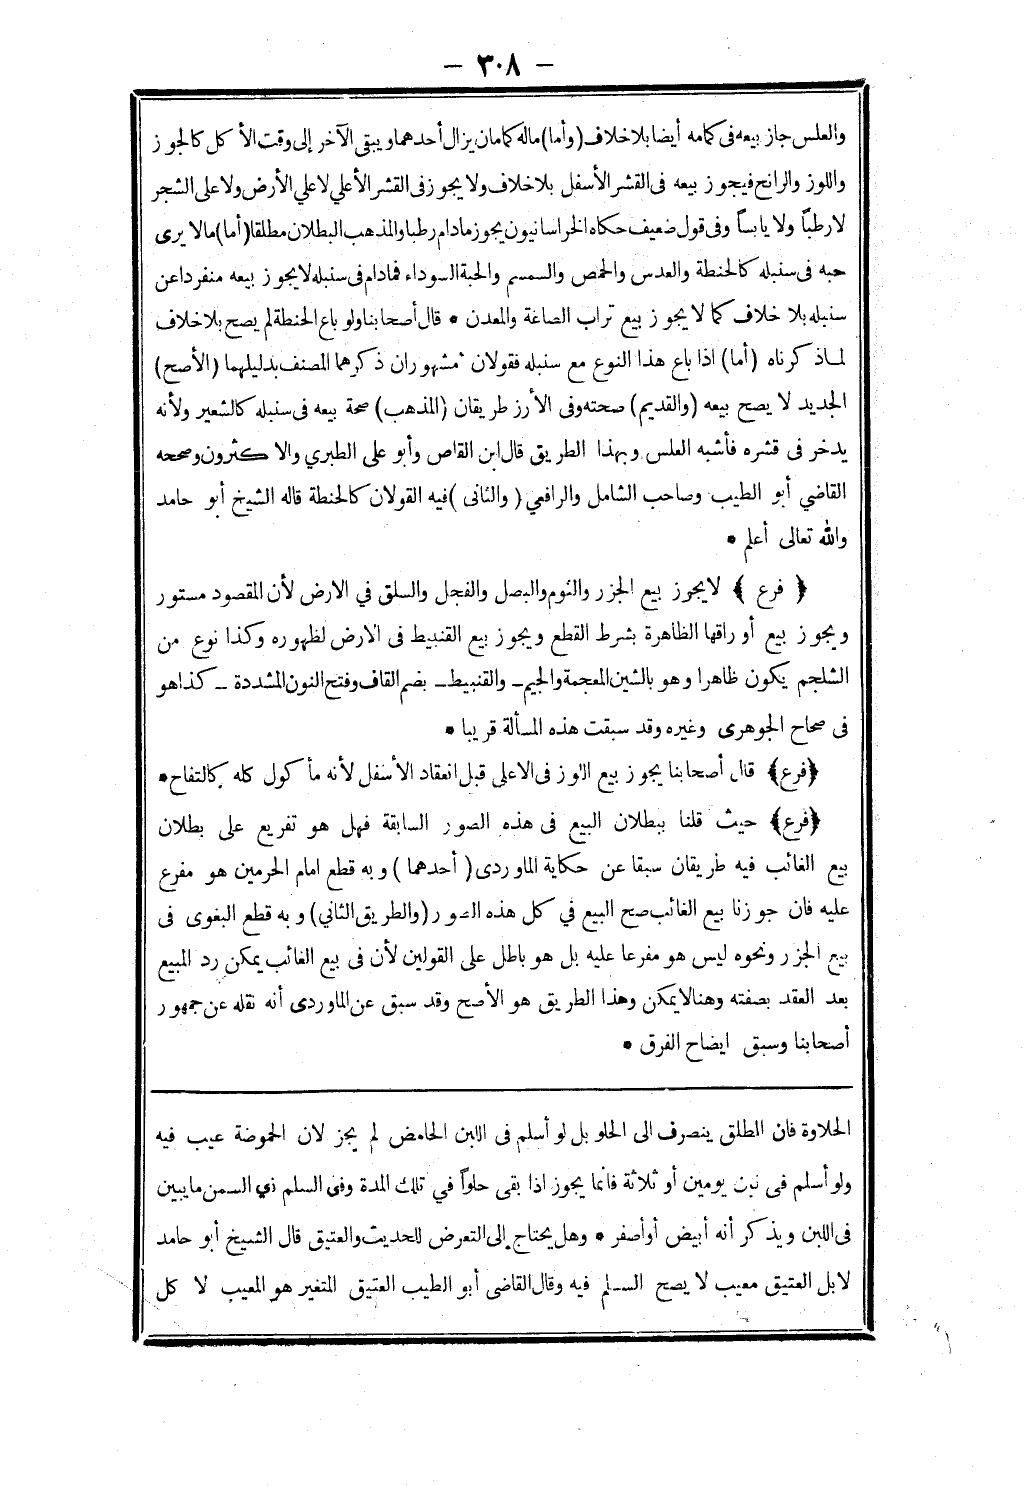 — ٣٠٨ —
والعلس جاز بيعه فى كمامه أيضا بلا خلاف (وأما) ماله كمامان يزال أحدهما ويبقى الآخر إلى وقت الأكل كالجوز
واللوز والرانج فيجوز بيعه فى القشر الأسفل بلا خلاف ولا يجوز فى القشر الأعلي لا علي الأرض ولا على الشجر
لا رطباً ولا يابساً وفى قول ضعيف حكاه الخراسانيون يجوز مادام رطبا والمذهب البطلان مطلقا (أما) مالا يرى
حبه فى سنبله كالحنطة والعدس والحمص والسمسم والحبة السوداء فمادام فى سنبله لا يجوز بيعه منفردا عن
سنبله بلا خلاف كما لا يجوز بيع تراب الصاغة والمعدن * قال أصحابنا ولو باع الحنطة لم يصح بلا خلاف
لما ذكرناه (أما) اذا باع هذا النوع مع سنبله فقولان مشهوران ذكرهما المصنف بدليلهما (الأصح)
الجديد لا يصح بيعه (والقديم) صحته وفى الأرز طريقان (المذهب) صحة بيعه فى سنبله كالشعير ولأنه
يدخر فى قشره فأشبه العلس وبهذا الطريق قال ابن القاص وأبو على الطبري والاكثرون وصححه
القاضي أبو الطيب وصاحب الشامل والرافعي (والثانى) فيه القولان كالحنطة قاله الشيخ أبو حامد
والله تعالى أعلم *
﴿ فرع ﴾ لا يجوز بيع الجزر والثوم والبصل والفجل والسلق في الارض لأن المقصود مستور
ويجوز بيع أوراقها الظاهرة بشرط القطع ويجوز بيع القنبيط فى الارض لظهوره وكذا نوع من
الشلجم يكون ظاهرا وهو بالشين المعجمة والجيم - والقنبيط - بضم القاف وفتح النون المشددة - كذا هو
فى صحاح الجوهرى وغيره وقد سبقت هذه المسألة قريبا *
﴿فرع﴾ قال أصحابنا يجوز بيع اللوز فى الاعلى قبل انعقاد الأسفل لأنه مأكول كله كالتفاح *
﴿فرع﴾ حيث قلنا ببطلان البيع فى هذه الصور السابقة فهل هو تفريع على بطلان
بيع الغائب فيه طريقان سبقا عن حكاية الماوردى (أحدهما) وبه قطع امام الحرمين هو مفرع
عليه فان جوزنا بيع الغائب صح البيع في كل هذه الصور (والطريق الثاني) وبه قطع البغوى فى
بيع الجزر ونحوه ليس هو مفرعا عليه بل هو باطل على القولين لأن فى بيع الغائب يمكن رد المبيع
بعد العقد بصفته وهنا لا يمكن وهذا الطريق هو الأصح وقد سبق عن الماوردى أنه نقله عن جمهور
أصحابنا وسبق ايضاح الفرق *
الحلاوة فان المطلق ينصرف الى الحلو بل لو أسلم فى اللبن الحامض لم يجز لان الحموضة عيب فيه
ولو أسلم فى لبن يومين أو ثلاثة فانما يجوز اذا بقى حلواً في تلك المدة وفى السلم في السمن ما يبين
فى اللبن ويذكر أنه أبيض أو أصفر * وهل يحتاج إلى التعرض للحديث والعتيق قال الشيخ أبو حامد
لا بل العتيق معيب لا يصح السلم فيه وقال القاضى أبو الطيب العتيق المتغير هو المعيب لا كل